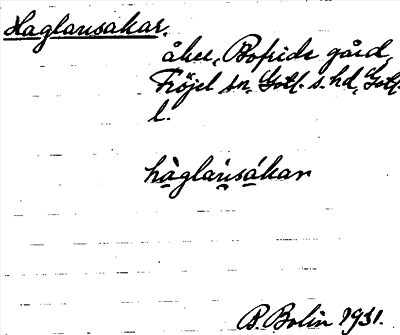 Haglausakar.
åker, Bopride gård,
Fröjel sn, Gotl. s. hd, Gotl.
l.
hàglau̯sákar
B. Bolin 1931.